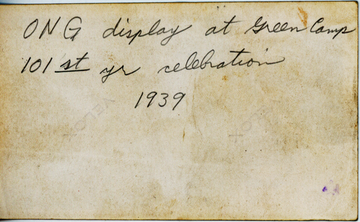 ONG display at Green Camp
101st yr celebration
1939